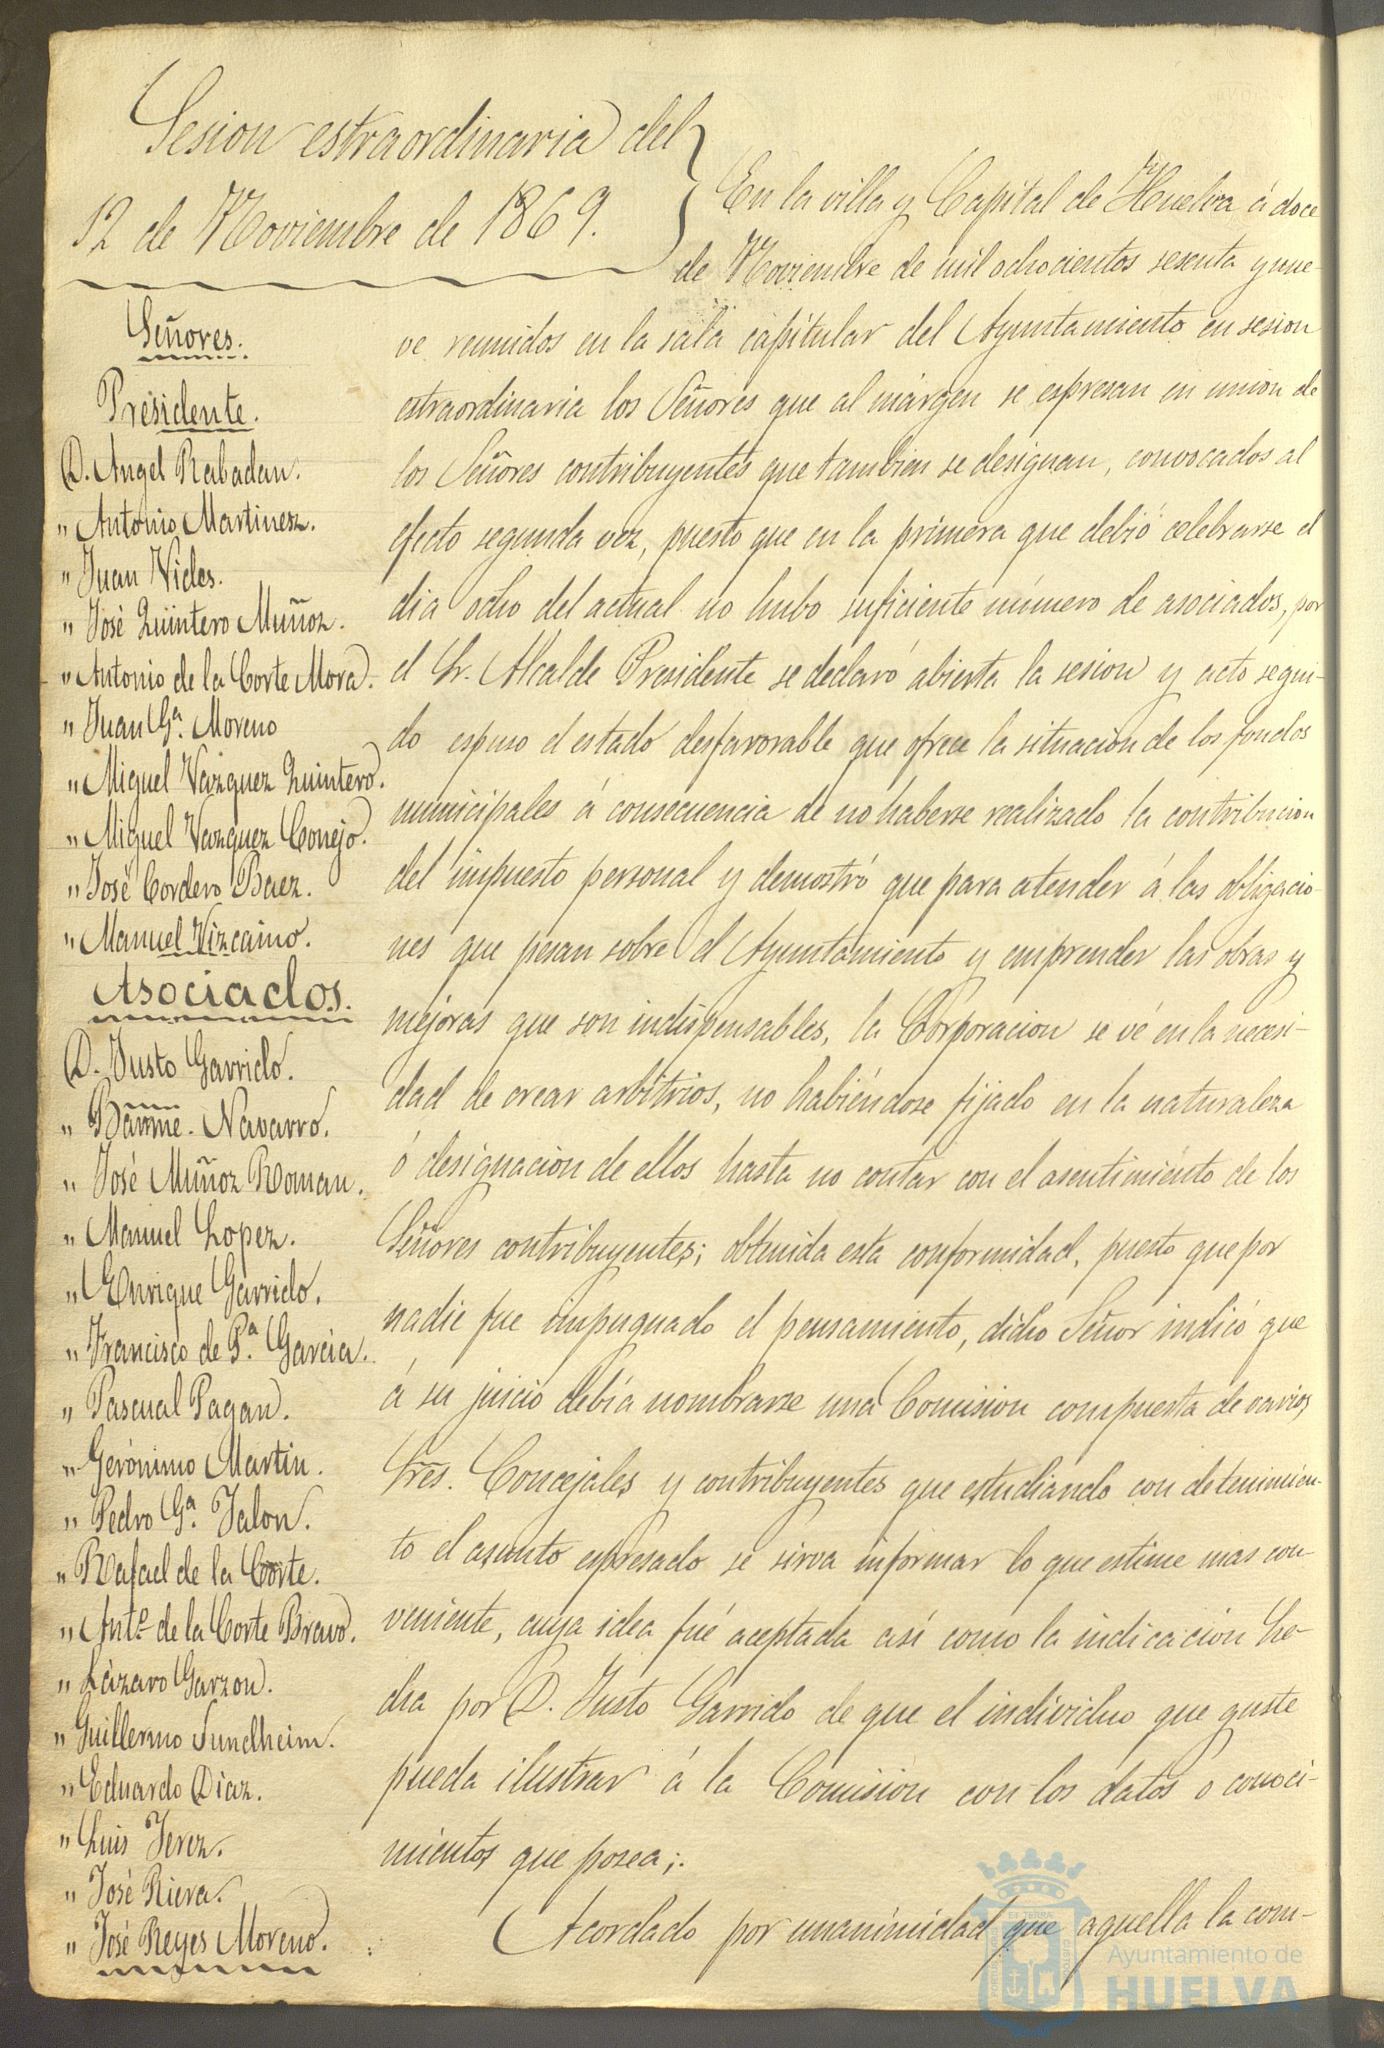 Sesion estraordinaria del
12 de Noviembre de 1869.
Señores.
Presidente.
D. Angel Rabadan.
" Antonio Martinez.
" Juan Vides.
" José Quintero Muñoz.
" Antonio de la Corte Mora.
" Juan Gª. Moreno
" Miguel Vazquez Quintero.
" Miguel Vazquez Conejo.
" José Cordero Baez.
" Manuel Vizcaino.
Asociados.
D. Justo Garrido.
" Barme. Navarro.
" José Muñoz Roman.
" Manuel Lopez.
" Enrique Garrido.
" Francisco de Pª. Garcia.
" Pascual Pagan.
" Gerónimo Martin.
" Pedro Gª. Jalon.
" Rafael de la Corte.
" Antº. de la Corte Bravo.
" Lázaro Garzon.
" Guillermo Sundheim.
" Eduardo Diaz.
" Luis Jerez.
" José Riera.
" José Reyes Moreno.
En la villa y Capital de Huelva á doce
de Noviembre de mil ochocientos sesenta y nue-
ve reunidos en la sala capitular del Ayuntamiento en sesion
estraordinaria los Señores que al márgen se espresan en union de
los Señores contribuyentes que tambien se designan, convocados al
efecto segunda vez, puesto que en la primera que debió celebrarse el
dia ocho del actual no hubo suficiente número de asociados, por
el Sr. Alcalde Presidente se declaró abierta la sesion y acto segui-
do espuso el estado desfavorable que ofrece la situacion de los fondos
municipales á consecuencia de no haberse realizado la contribucion
del impuesto personal y demostró que para atender á las obligacio-
nes que pesan sobre el Ayuntamiento y emprender las obras y
mejoras que son indispensables, la Corporacion se vé en la necesi-
dad de crear arbitrios, no habiéndose fijado en la naturaleza
ó designacion de ellos hasta no contar con el asentimiento de los
Señores contribuyentes; obtenida esta conformidad, puesto que por
nadie fue impugnado el pensamiento, dicho Señor indicó que
á su juicio debía nombrarse una Comision compuesta de varios
Sres. Concejales y contribuyentes que estudiando con detenimien-
to el asunto espresado se sirva informar lo que estime mas con-
veniente, cuya idea fué aceptada así como la indicacion he-
cha por D. Justo Garrido de que el individuo que guste
pueda ilustrar á la Comision con los datos o conoci-
mientos que posea;.
Acordado por unanimidad que aquella la com-
Ayuntamiento de
HUELVA